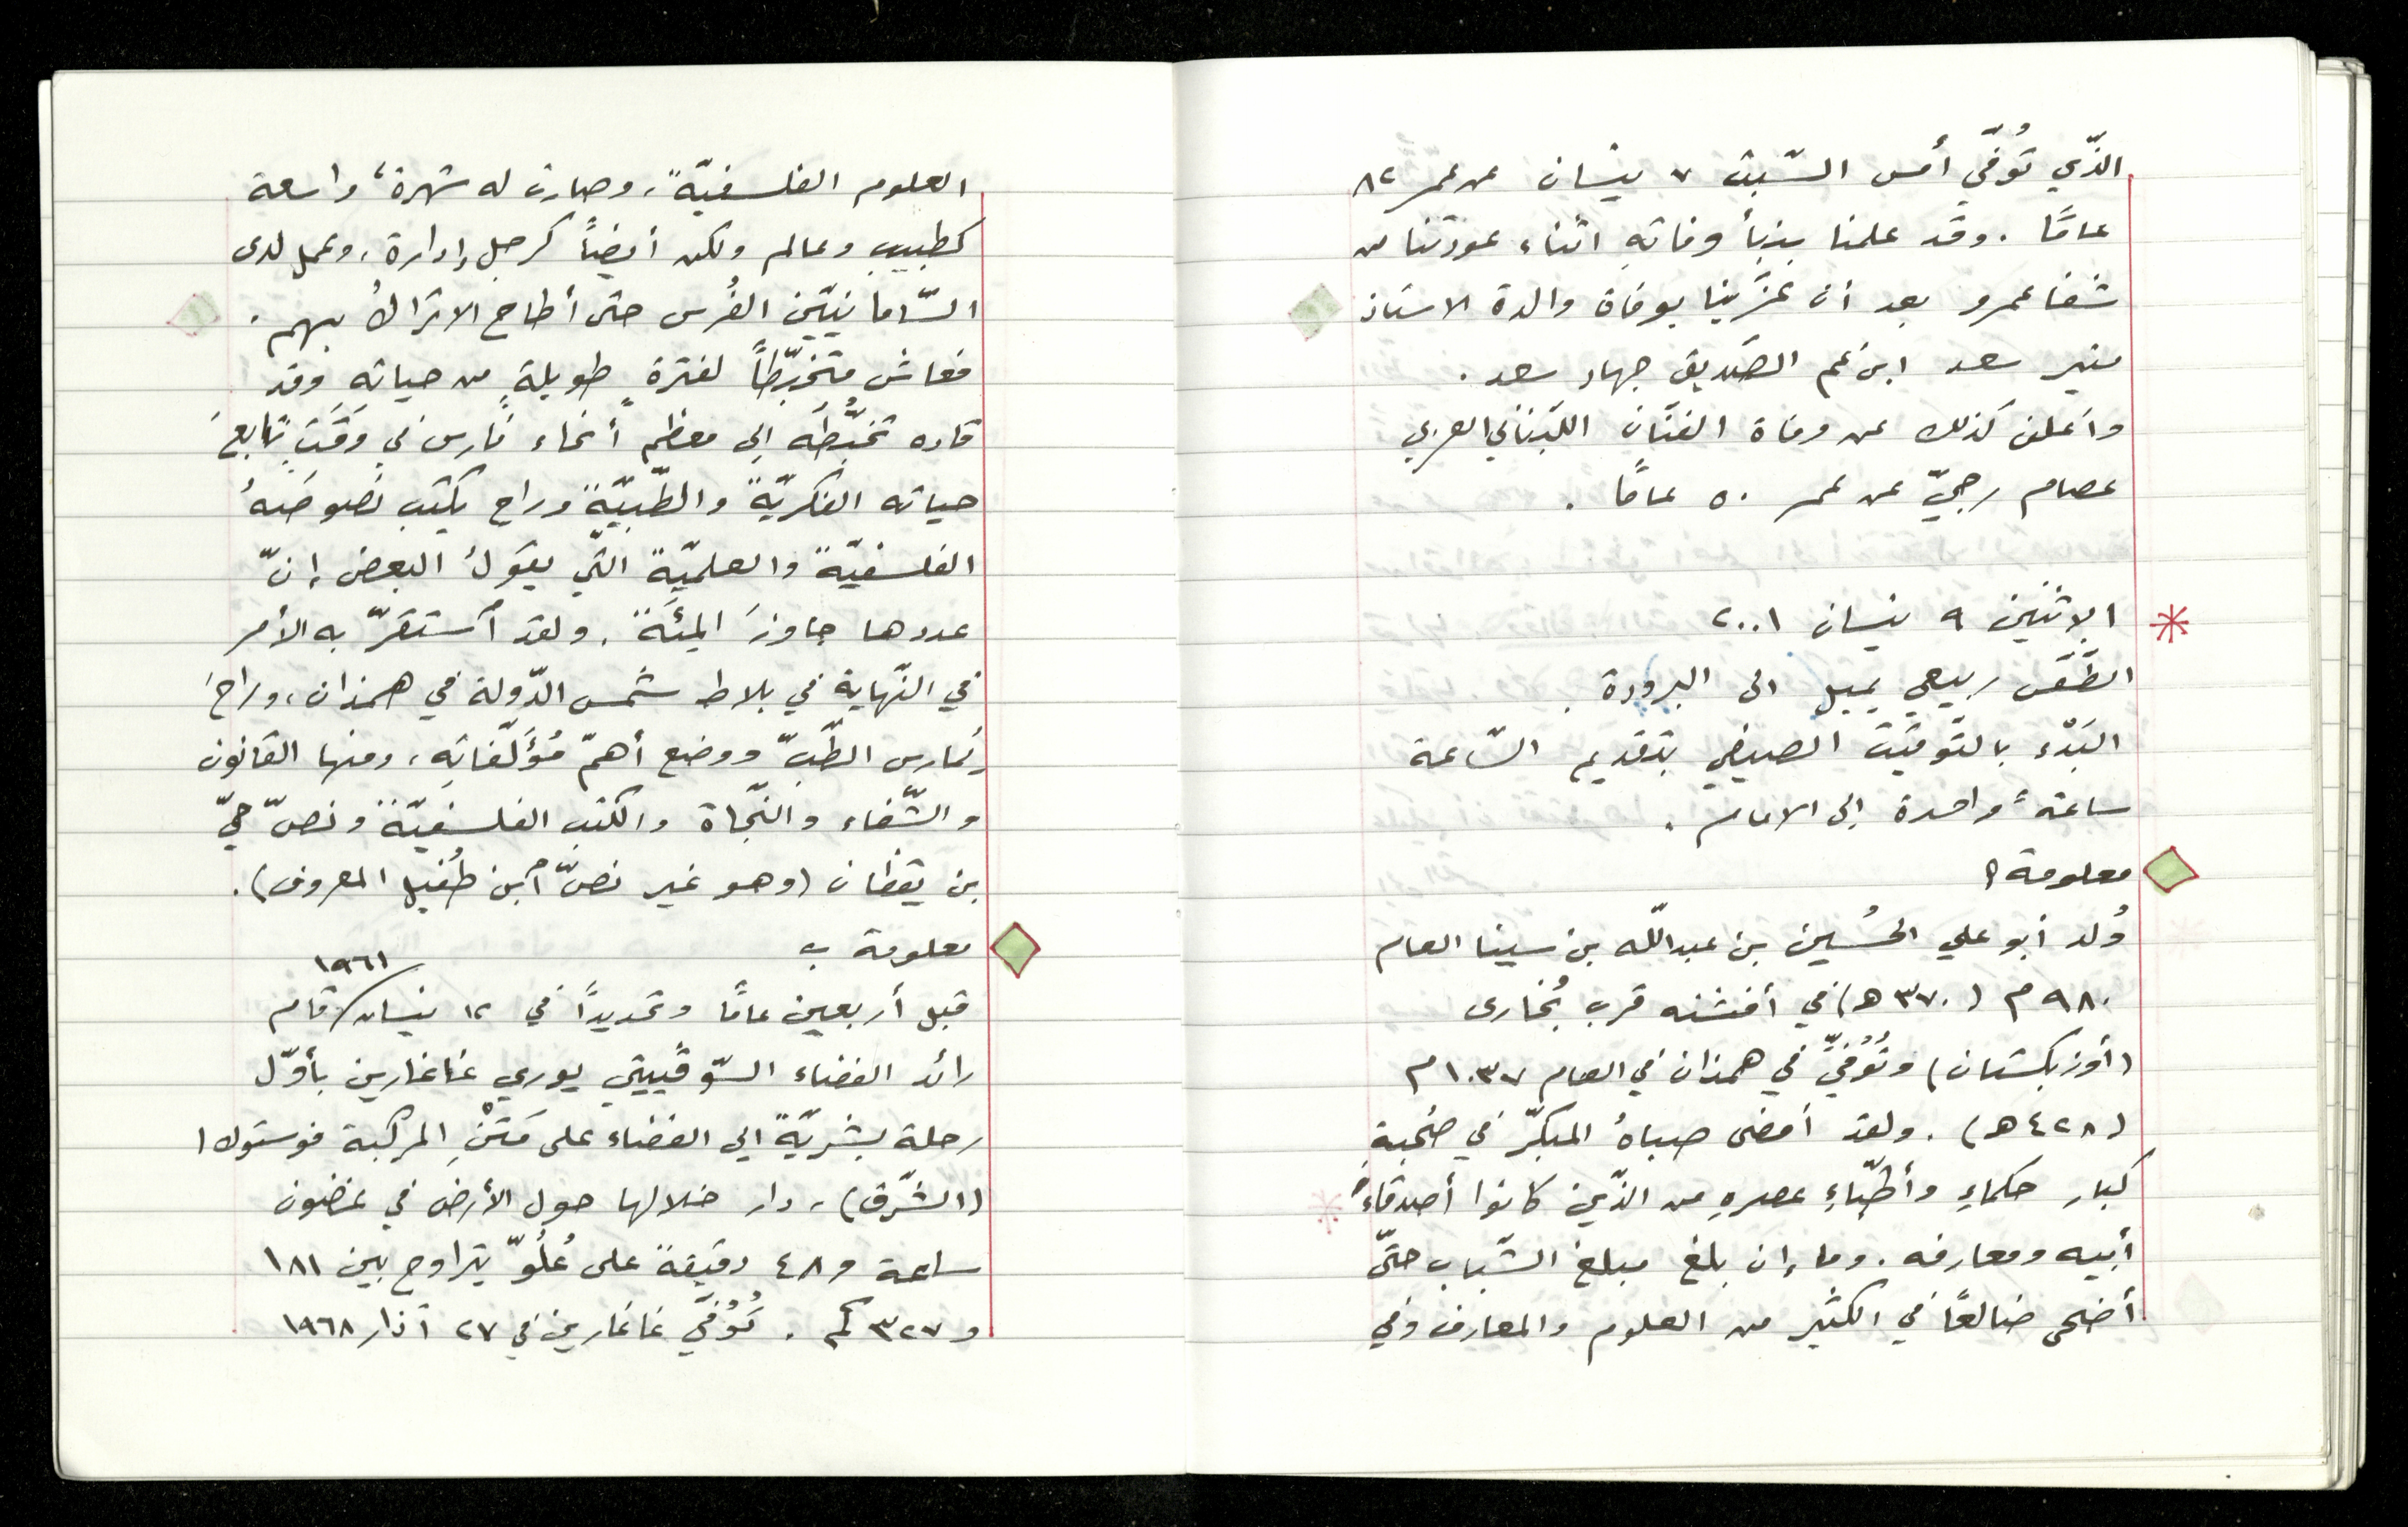 الذّي تُوُفّي أمس السّبت ٧ نيسان عن عمر ٨٢
عامًا . وقد علمنا بنبأ وفاتهِ اثناء عودتنا من
شفاعمرو بعد أن عزّينا بوفاة والدة الاستاذ
منير سعد ابن عم الصّديق جهاد سعد .
وأعلن كذلك عن وفاة الفنّان اللّبناني العربي
عصام رجيّ عن عمر ٥٠ عامًا .
الإثنين ٩ نيسان ٢٠٠١
الطّقس ربيعي يميل الى البرودة .
البَدْء بالتّوقيت الصيفي بتقديم السّاعة
ساعةً واحدة إلى الامام .
معلومة أ
وُلد أبو علي الحُسين بن عبداللّه بن سينا العام
٩٨٠ م (٣٧٠ هـ) في أفشنه قرب بُخارى
(أوزبكستان) وتُوُفيَّ في همذان في العام ١٠٣٧ م
(٤٢٨ هـ) . ولقد أمضى صباهُ المبكّر في صُحبةِ
كبارِ حكماءِ وأطبّاءِ عصرهِ من الذّين كانوا أصدقاءَ
أبيه ومعارفه . وما إن بلغ مبلغ الشّباب حتّى
أضحى ضالعًا في الكثير من العلوم والمعارف وفي
العلوم الفلسفيّة ، وصارت له شهرةٌ واسعة
كطبيبٍ وعالم ولكن أيضاً كرجل إدارة ، وعمل لدى
السّامانيّين الفُرس حتى أطاح الاتراكُ بهم .
فعاش متخبّطاً لفترةٍ طويلةٍ من حياتهِ وقد
قاده تخبّطُه إلى معظم أنحاء فارس في وقتٍ تابعَ
حياته الفكريّة والطّبيّة وراح يكتب نصوصَهُ
الفلسفيّة والعلميّة التّي يقولُ البعض إنّ
عددها جاوزَ المِئَة . ولقد أستقرّ به الأمر
في النّهاية في بلاط شمس الدّولة في همذان ، وراحَ
يُمارس الطّبّ ووضع أهمّ مُؤلّفاتِهِ ، ومنها القانون
والشّفاء والنّجاة والكتب الفلسفيّة ونصّ حيّ
بن يقظان (وهو غير نصّ أبن طُفيل المعروف) .
معلومة ب
قبل أربعين عامًا وتحديدًا في ١٢ نيسان ١٩٦١ قام
رائد الفضاء السّوڤييتي يوري غاغارين بأوّل
رحلة بشريّة الى الفضاء على مَتْنِ المركبة فوستوك ١
(الشّرق) ، دار خلالها حول الأرض في غضون
ساعة و ٤٨ دقيقة على عُلُوّ يتراوح بين ١٨١
و ٣٢٧ كم . تُوُفّيَ غاغارين في ٢٧ آذار ١٩٦٨